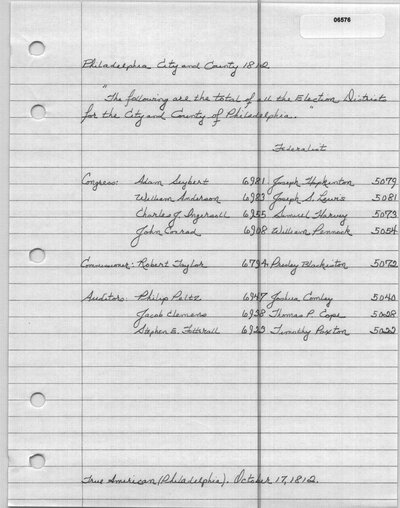 06576
Philadelphia City and County 1812
"The following are the total of all the Election Districts
for the City and County of Philadelphia."
Federalist
Congress: Adam Seybert 6981 Joseph Hopkinton 5079
William Anderson 6983 Joseph S. Lewis 5081
Charles J. Ingersoll 6955 Samuel Harvey 5073
John Conrad 6908 William Pennock 5054
Commissioner: Robert Taylor 6794 Presley Blackiston 5072
Auditors: Philip Peltz 6947 Joshua Comley 5040
Jacob Clemens 6928 Thomas P. Cope 5028
Stephen E. Fotterall 6922 Timothy Paxton 5022
True American (Philadelphia). October 17, 1812.